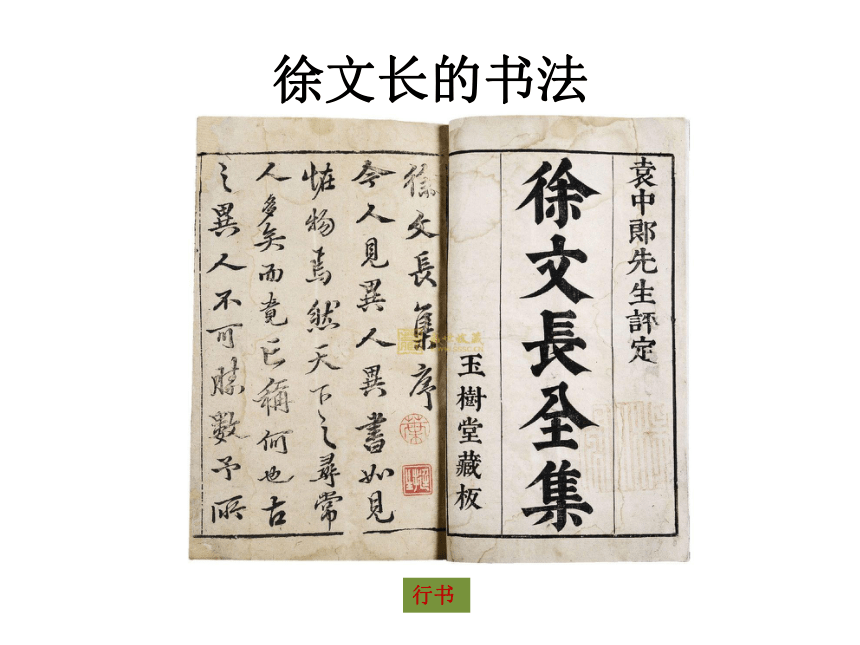 徐文长的书法
袁中郎先生評定
徐文長全集
玉樹堂藏板
徐文長集序
今人見異人異書如見
恠物焉然天下之尋常
人多矣而竟亡稱何也古
之異人不可勝數予所
行书